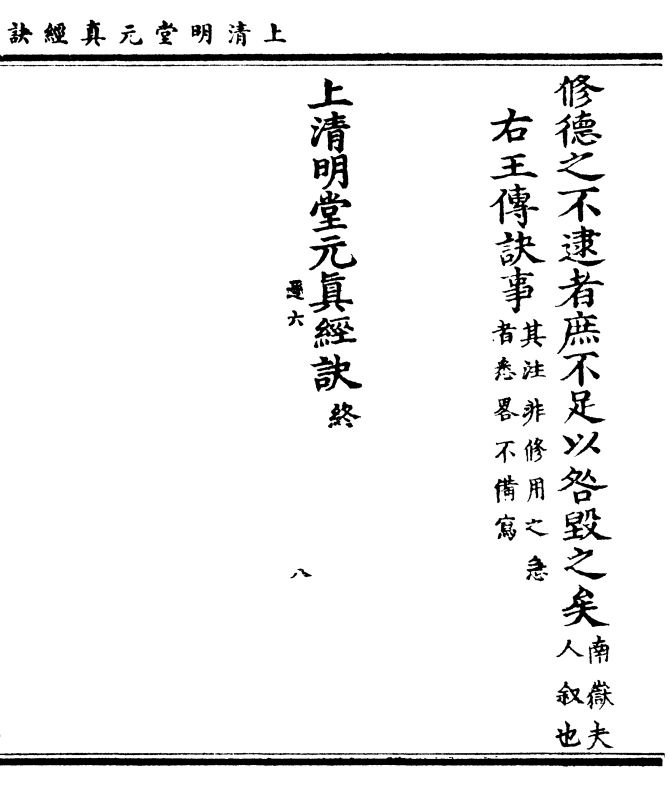 上清明堂元真經訣
修德之不逮者庶不足以咎毀之矣南嶽夫人叙也
右王傳訣事其注非修用之急者悉畧不備寫
上清明堂元眞經訣終
遜六
八